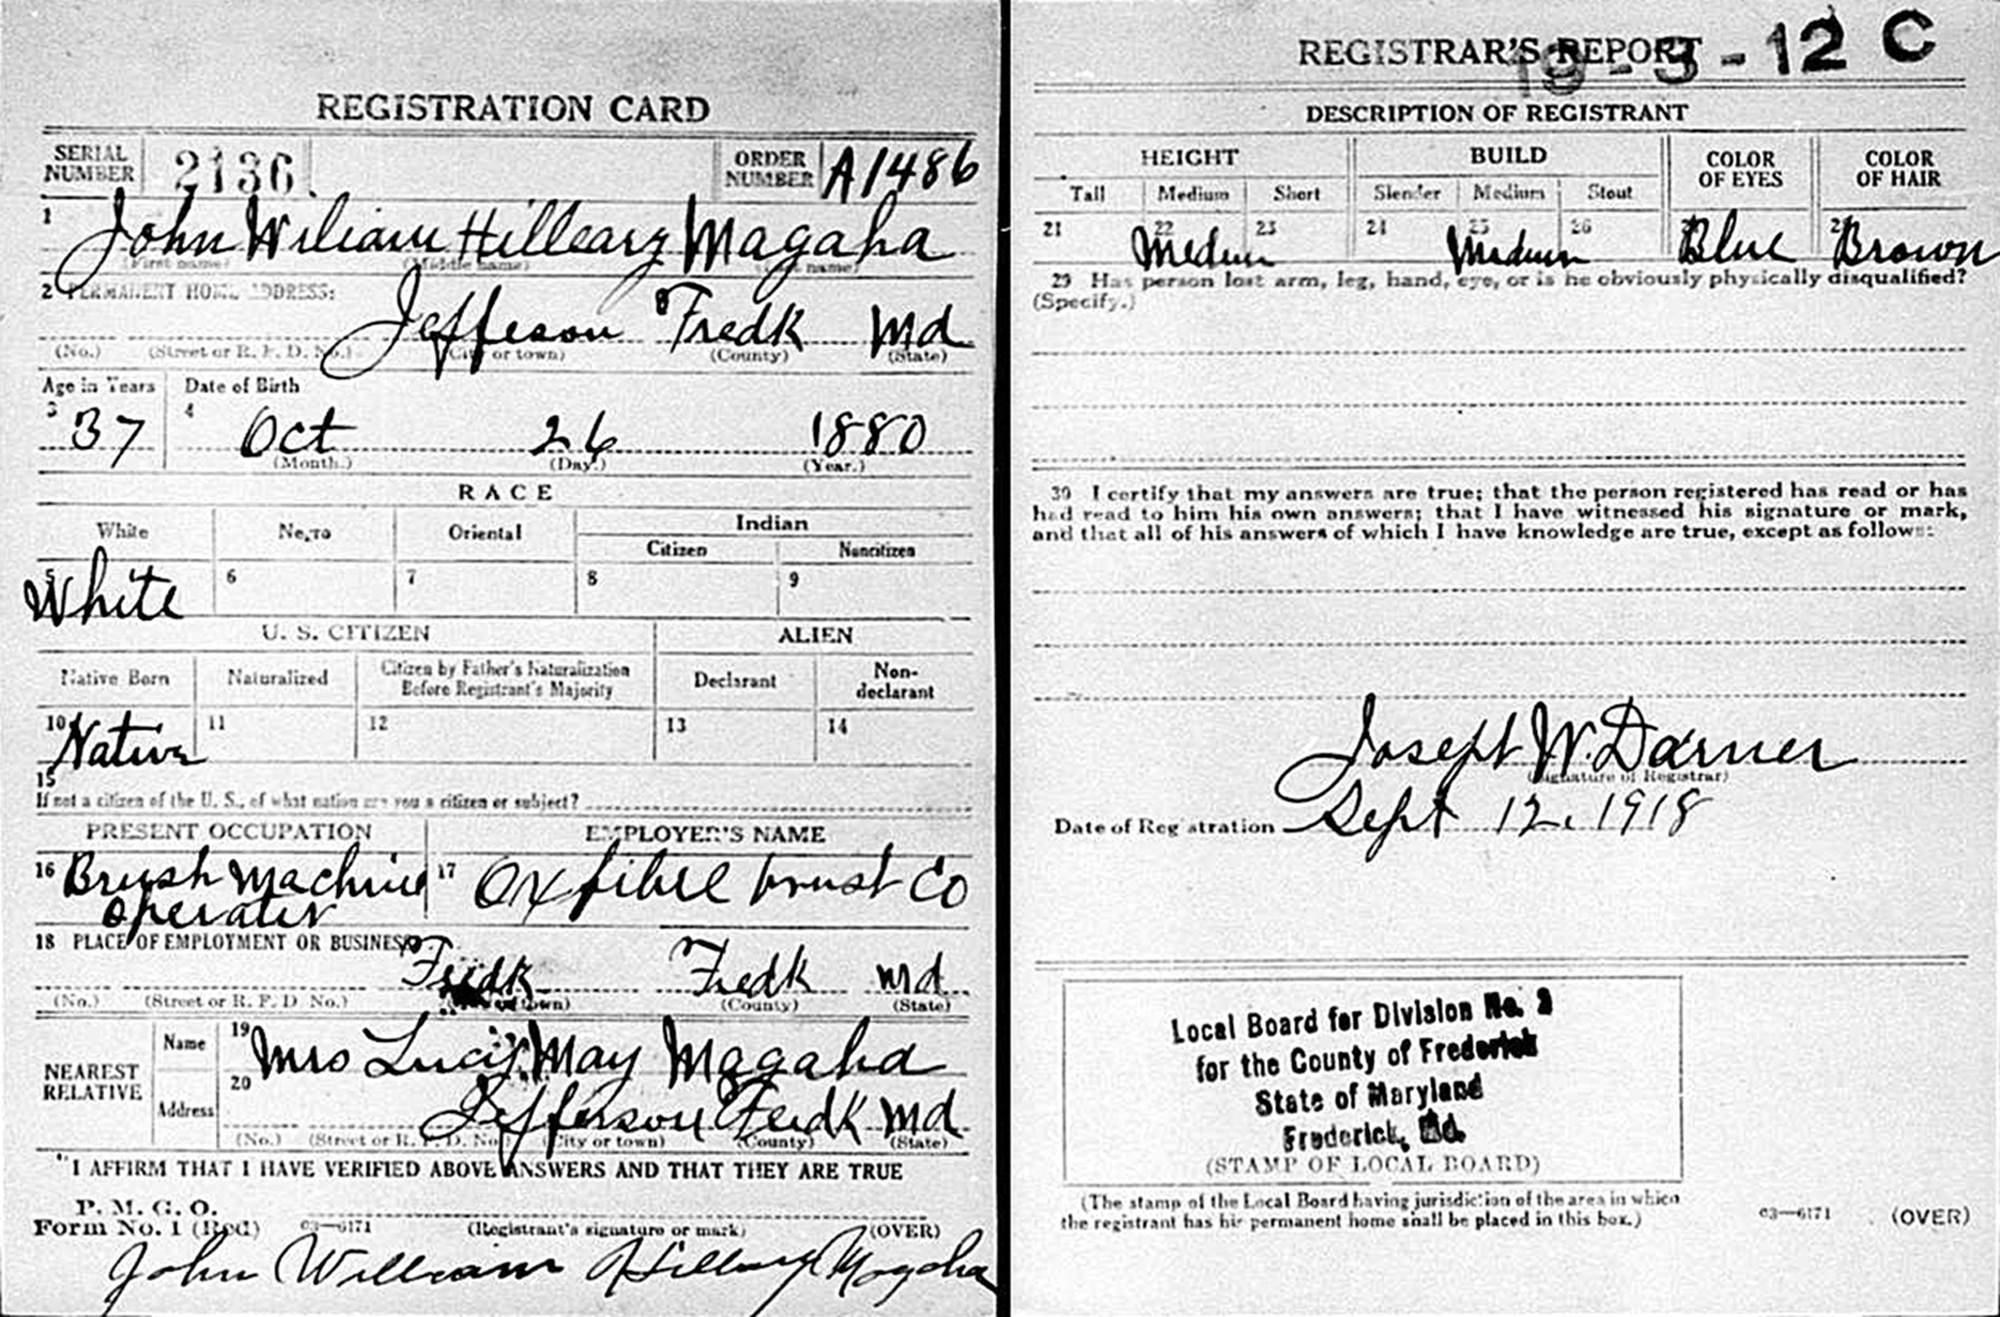 REGISTRATION CARD
SERIAL NUMBER 2136 ORDER NUMBER A1486
1 John Wiliam Hilleary Magaha
(First name) (Middle name) (Last name)
2 PERMANENT HOME ADDRESS:
Jeffeson Fredk Md
(No.) (Street or R. F. D. No.) (City or town) (County) (State)
Age in Years Date of Birth
3 37 4 Oct 26 1880
(Month.) (Day.) (Year.)
RACE
White Negro Oriental Indian
Citizen Noncitizen
5 White 6 7 8 9
U. S. CITIZEN ALIEN
Native Born Naturalized Citizen by Father's Naturalization Before Registrant's Majority Declarant Non-declarant
10 Native 11 12 13 14
15
If not a citizen of the U. S., of what nation are you a citizen or subject?
PRESENT OCCUPATION EMPLOYER'S NAME
16 Brush Machine 17 Ox fibre brush Co
operator
18 PLACE OF EMPLOYMENT OR BUSINESS:
Fredk Fredk Md
(No.) (Street or R. F. D. No.) (City or town) (County) (State)
NEAREST RELATIVE
Name 19 Mrs Lucy May Magaha
Address 20 Jefferson Fredk Md
(No.) (Street or R. F. D. No.) (City or town) (County) (State)
I AFFIRM THAT I HAVE VERIFIED ABOVE ANSWERS AND THAT THEY ARE TRUE
P. M. G. O.
Form No. 1 (Red) 03—6171 (Registrant's signature or mark) (OVER)
John William Hilleary Magaha
REGISTRAR'S REPORT
19-3-12 C
DESCRIPTION OF REGISTRANT
HEIGHT BUILD COLOR OF EYES COLOR OF HAIR
Tall Medium Short Slender Medium Stout
21 22 Medium 23 24 25 Medium 26 27 Blue 28 Brown
29 Has person lost arm, leg, hand, eye, or is he obviously physically disqualified?
(Specify.)
30 I certify that my answers are true; that the person registered has read or has
had read to him his own answers; that I have witnessed his signature or mark,
and that all of his answers of which I have knowledge are true, except as follows:
Joseph W. Darner
(Signature of Registrar)
Date of Registration Sept 12, 1918
Local Board for Division No. 2
for the County of Frederick
State of Maryland
Frederick, Md.
(STAMP OF LOCAL BOARD)
(The stamp of the Local Board having jurisdiction of the area in which
the registrant has his permanent home shall be placed in this box.)
03—6171 (OVER)